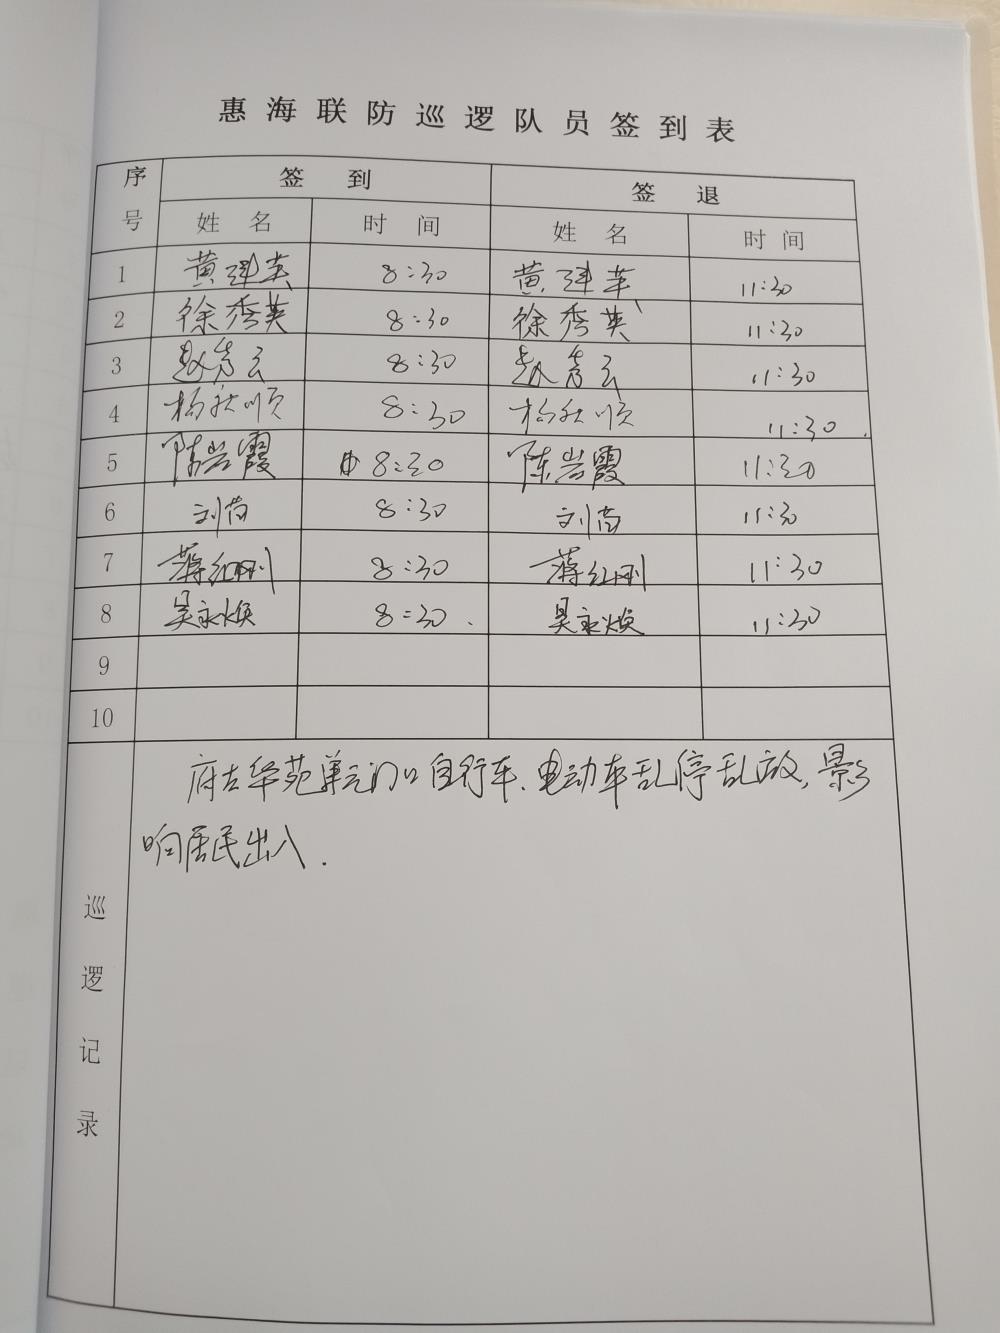 惠海联防巡逻队员签到表
序号 签到 签退
姓名 时间 姓名 时间
1 黄建英 8:30 黄建英 11:30
2 徐秀英 8:30 徐秀英 11:30
3 赵秀云 8:30 赵秀云 11:30
4 杨秋顺 8:30 杨秋顺 11:30
5 陈岩霞 8:30 陈岩霞 11:30
6 刘苗 8:30 刘苗 11:30
7 蒋红刚 8:30 蒋红刚 11:30
8 吴永焕 8:30 吴永焕 11:30
9
10
巡逻记录
府左华苑单元门口自行车、电动车乱停乱放,影
响居民出入.